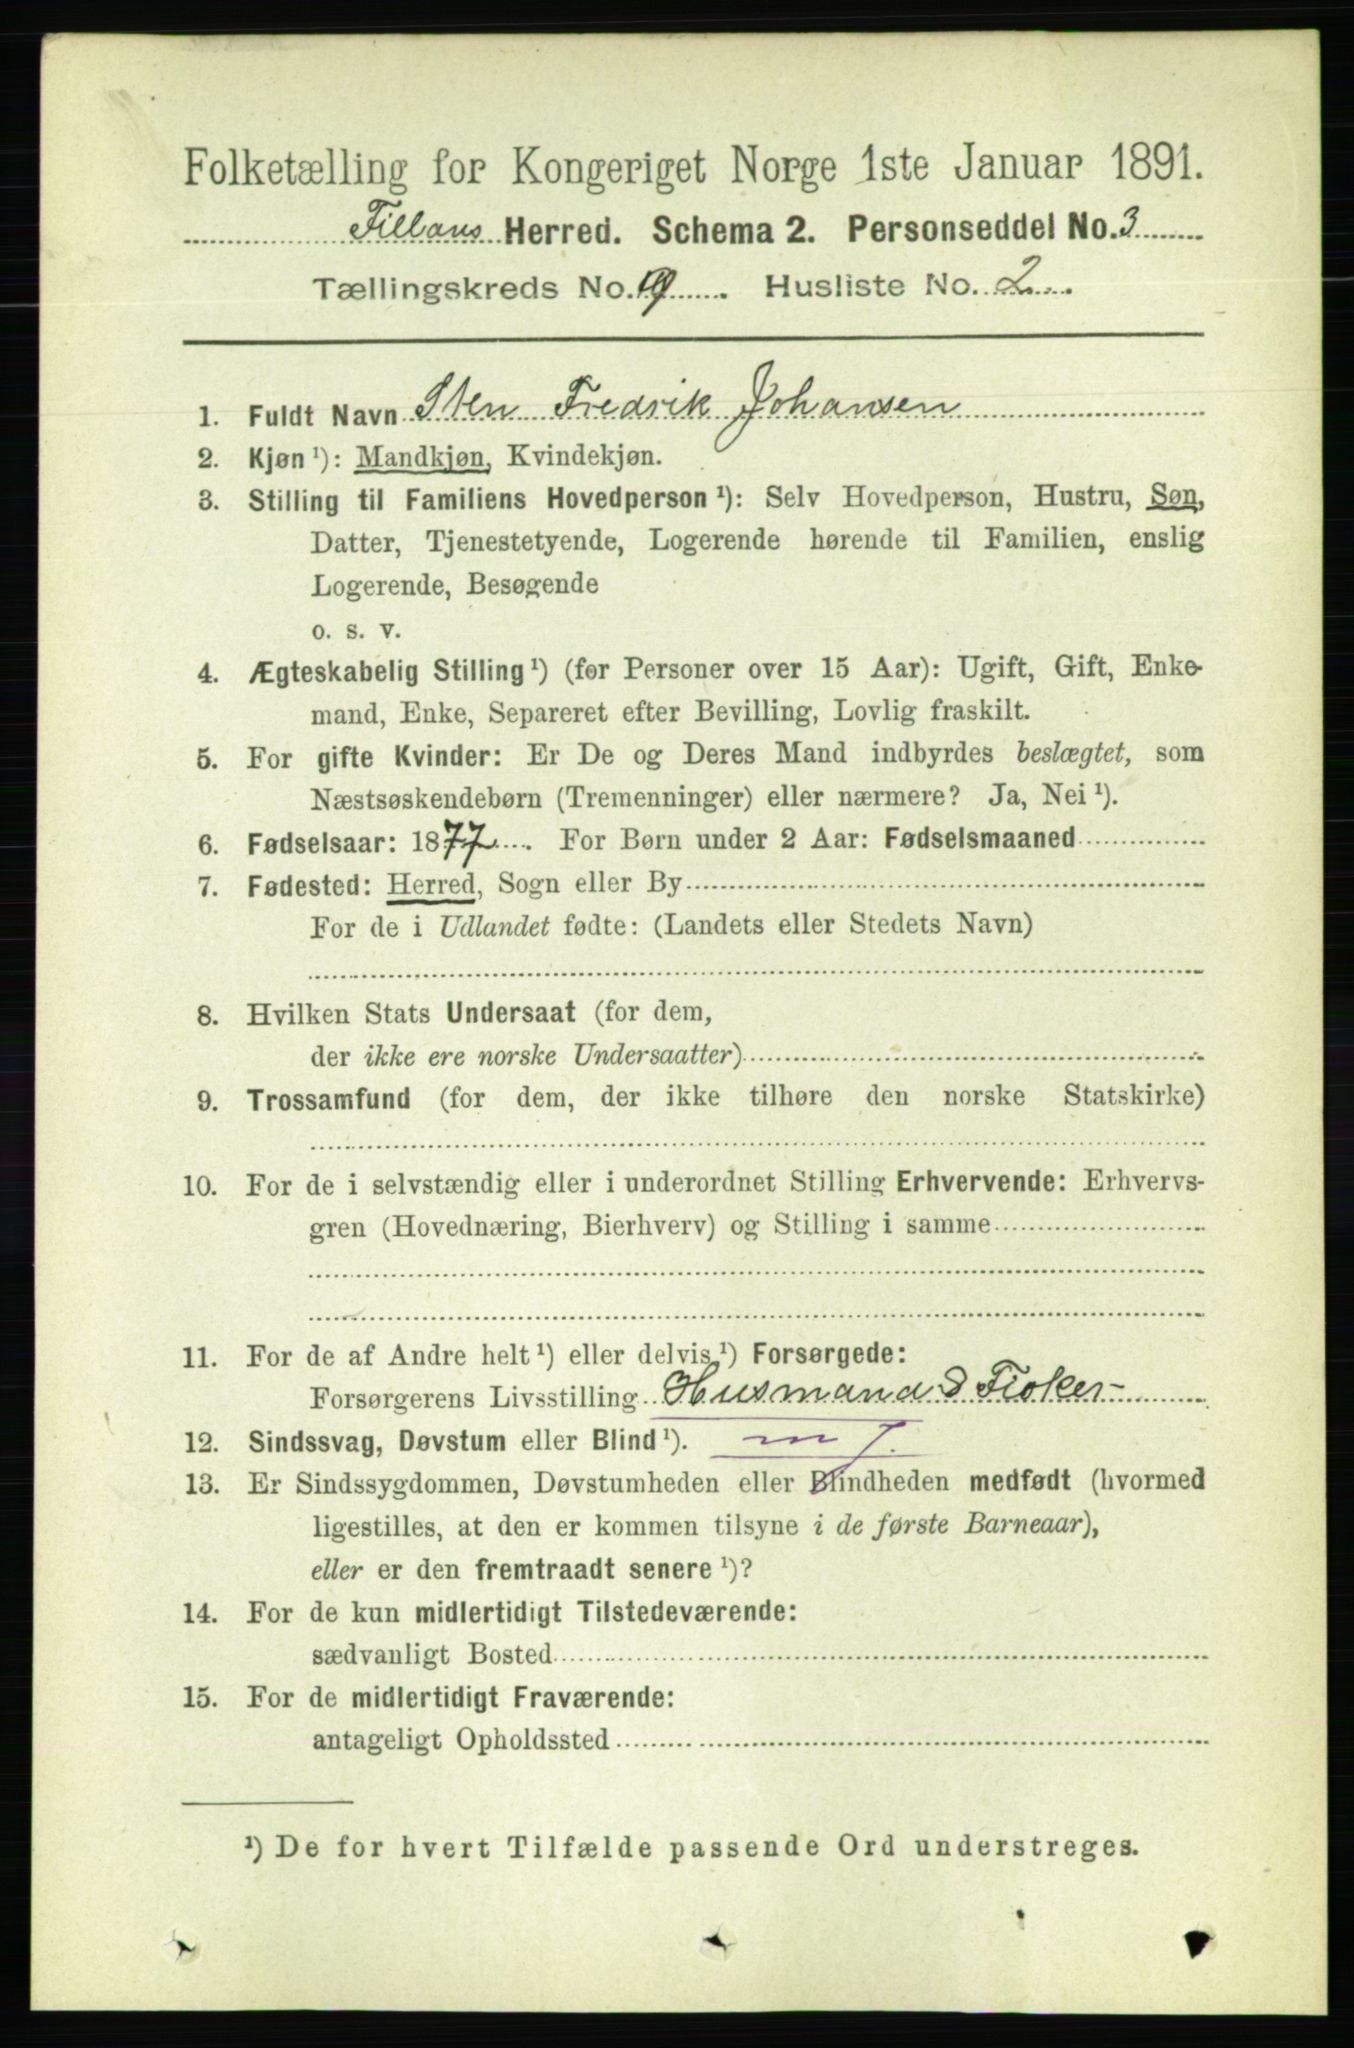 Folketælling for Kongeriget Norge 1ste Januar 1891.
Fillans Herred. Schema 2. Personseddel No. 3
Tællingskreds No. Husliste No. 2
1. Fuldt Navn Sten Fredrik Johansen
2. Kjøn ¹): Mandkjøn, Kvindekjøn.
3. Stilling til Familiens Hovedperson ¹): Selv Hovedperson, Hustru, Søn,
Datter, Tjenestetyende, Logerende hørende til Familien, enslig
Logerende, Besøgende
o. s. v.
4. Ægteskabelig Stilling ¹) (for Personer over 15 Aar): Ugift, Gift, Enke-
mand, Enke, Separeret efter Bevilling, Lovlig fraskilt.
5. For gifte Kvinder: Er De og Deres Mand indbyrdes beslægtet, som
Næstsøskendebørn (Tremenninger) eller nærmere? Ja, Nei ¹).
6. Fødselsaar: 1877. For Børn under 2 Aar: Fødselsmaaned
7. Fødested: Herred, Sogn eller By
For de i Udlandet fødte: (Landets eller Stedets Navn)
8. Hvilken Stats Undersaat (for dem,
der ikke ere norske Undersaatter)
9. Trossamfund (for dem, der ikke tilhøre den norske Statskirke)
10. For de i selvstændig eller i underordnet Stilling Erhvervende: Erhvervs-
gren (Hovednæring, Bierhverv) og Stilling i samme
11. For de af Andre helt ¹) eller delvis ¹) Forsørgede:
Forsørgerens Livsstilling Husmand & Fisker
12. Sindssvag, Døvstum eller Blind ¹).
13. Er Sindssygdommen, Døvstumheden eller Blindheden medfødt (hvormed
ligestilles, at den er kommen tilsyne i de første Barneaar),
eller er den fremtraadt senere ¹)?
14. For de kun midlertidigt Tilstedeværende:
sædvanligt Bosted
15. For de midlertidigt Fraværende:
antageligt Opholdssted
¹) De for hvert Tilfælde passende Ord understreges.